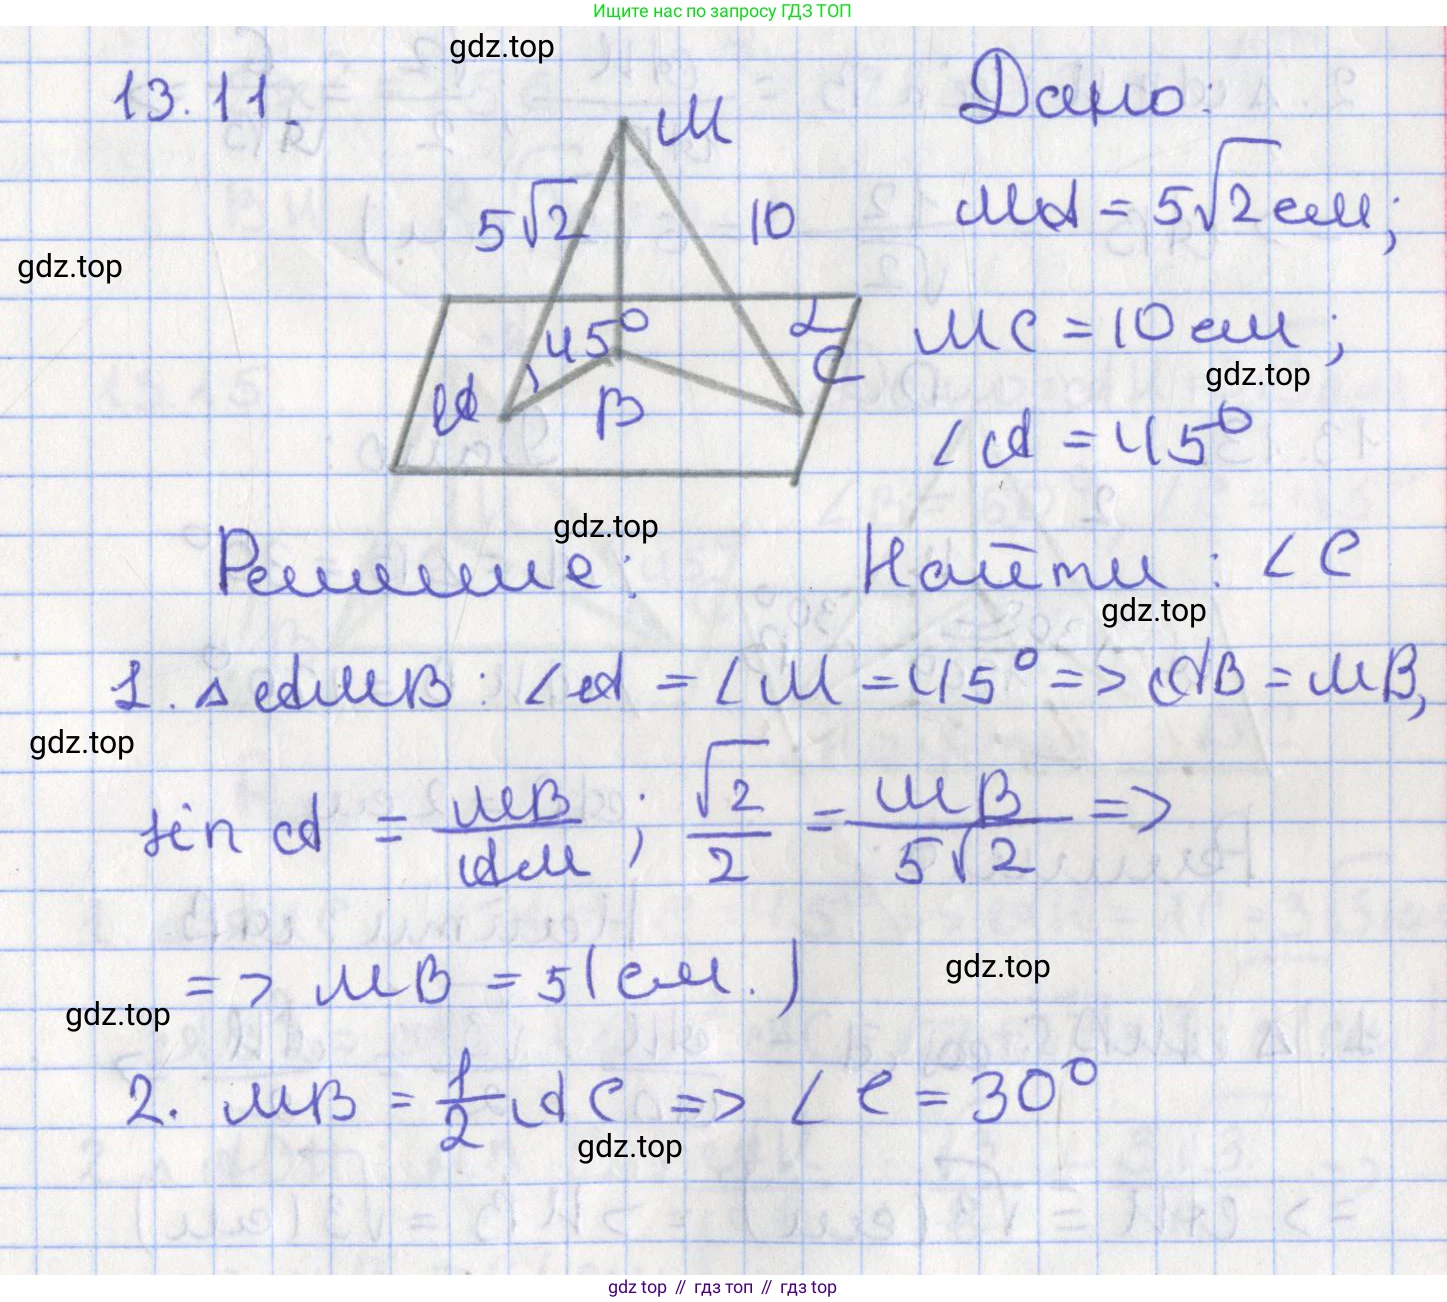 Ищите нас по запросу ГДЗ ТОП
gdz.top
13.11.
M
Дано:
5√2
10
MA = 5√2 см;
gdz.top
45°
α
C
MC = 10 см;
gdz.top
A
B
∠A = 45°
gdz.top
Решение:
Найти: ∠C
gdz.top
1. △AMB: ∠A = ∠M = 45° => AB = MB,
gdz.top
sin A = MB/AM; √2/2 = MB/5√2 =>
=> MB = 5 (см.)
gdz.top
gdz.top
2. MB = 1/2 AC => ∠C = 30°
gdz.top
gdz top // гдз топ // гдз top